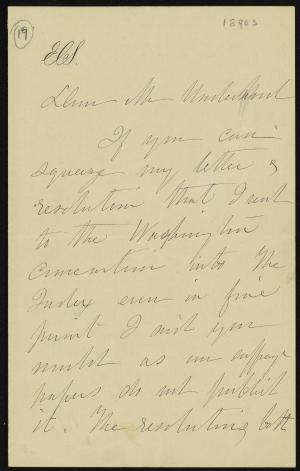 19
1890s
ECS.
Dear Mr Underwood
If you can
squeeze my letter &
resolution that I sent
to the Washington
convention into The
Index even in fine
print I wish you
would as our suffrage
papers do not publish
it. The resolutions both